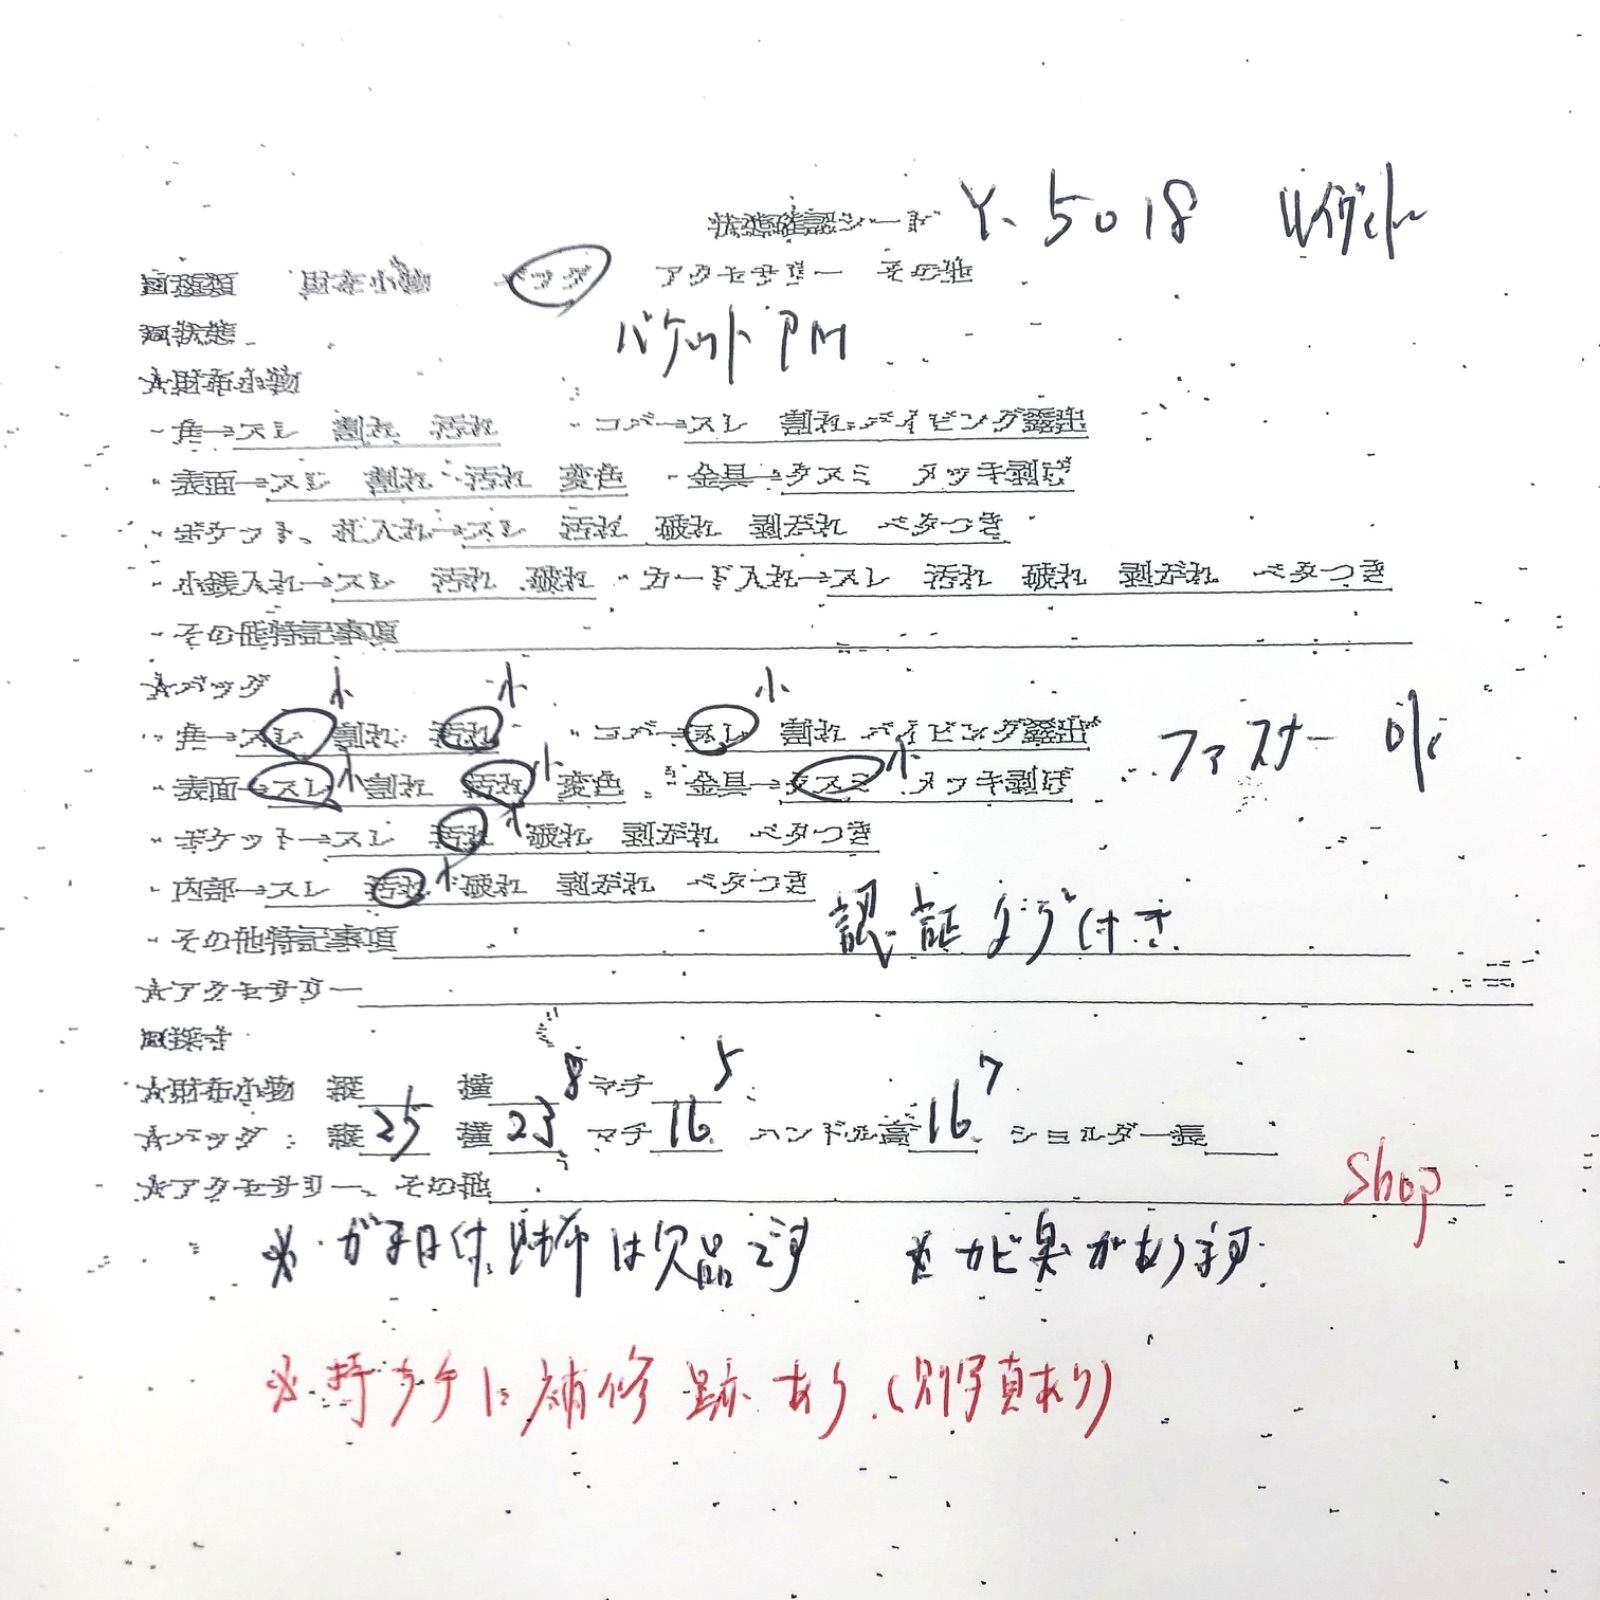 状態確認シート Y-5018 ルイヴィトン
■種類 財布小物 バッグ アクセサリー その他
■状態 バケットPM
★財布小物
・角→スレ 割れ 汚れ ・コバ→スレ 割れ パイピング露出
・表面→スレ 割れ 汚れ 変色 ・金具→クスミ メッキ剥げ
・ポケット、札入れ→スレ 汚れ 破れ 剥がれ ベタつき
・小銭入れ→スレ 汚れ 破れ ・カード入れ→スレ 汚れ 破れ 剥がれ ベタつき
・その他特記事項
★バッグ 小 小 小
・角→スレ 割れ 汚れ ・コバ→スレ 割れ パイピング露出
・表面→スレ 小 割れ 汚れ 小 変色 ・金具→クスミ 小 メッキ剥げ ファスナー ok
・ポケット→スレ 汚れ 小 破れ 剥がれ ベタつき
・内部→スレ 汚れ 小 破れ 剥がれ ベタつき
・その他特記事項 認証タグ付き
★アクセサリー
■採寸
★財布小物 縦 横 マチ
★バッグ:縦25 横23.8 マチ16.5 ハンドル高16.7 ショルダー長
★アクセサリー、その他 shop
※付財布は欠品です ※カビ臭があります
※持ち手に補修跡あり(別写真あり)